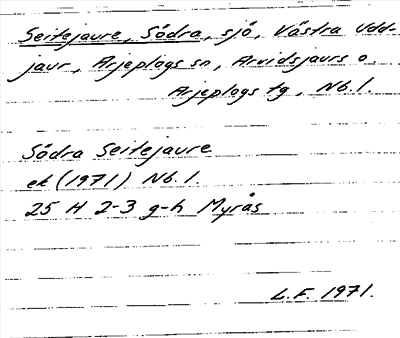 Seitejaure, Södra, sjö, Västra Udd-
jaur, Arjeplogs sn, Arvidsjaurs o.
Arjeplogs tg, Nb. l.
Södra Seitejaure
ek (1971) Nb. l.
25 H 2-3 g-h Myrås
L.F. 1971.